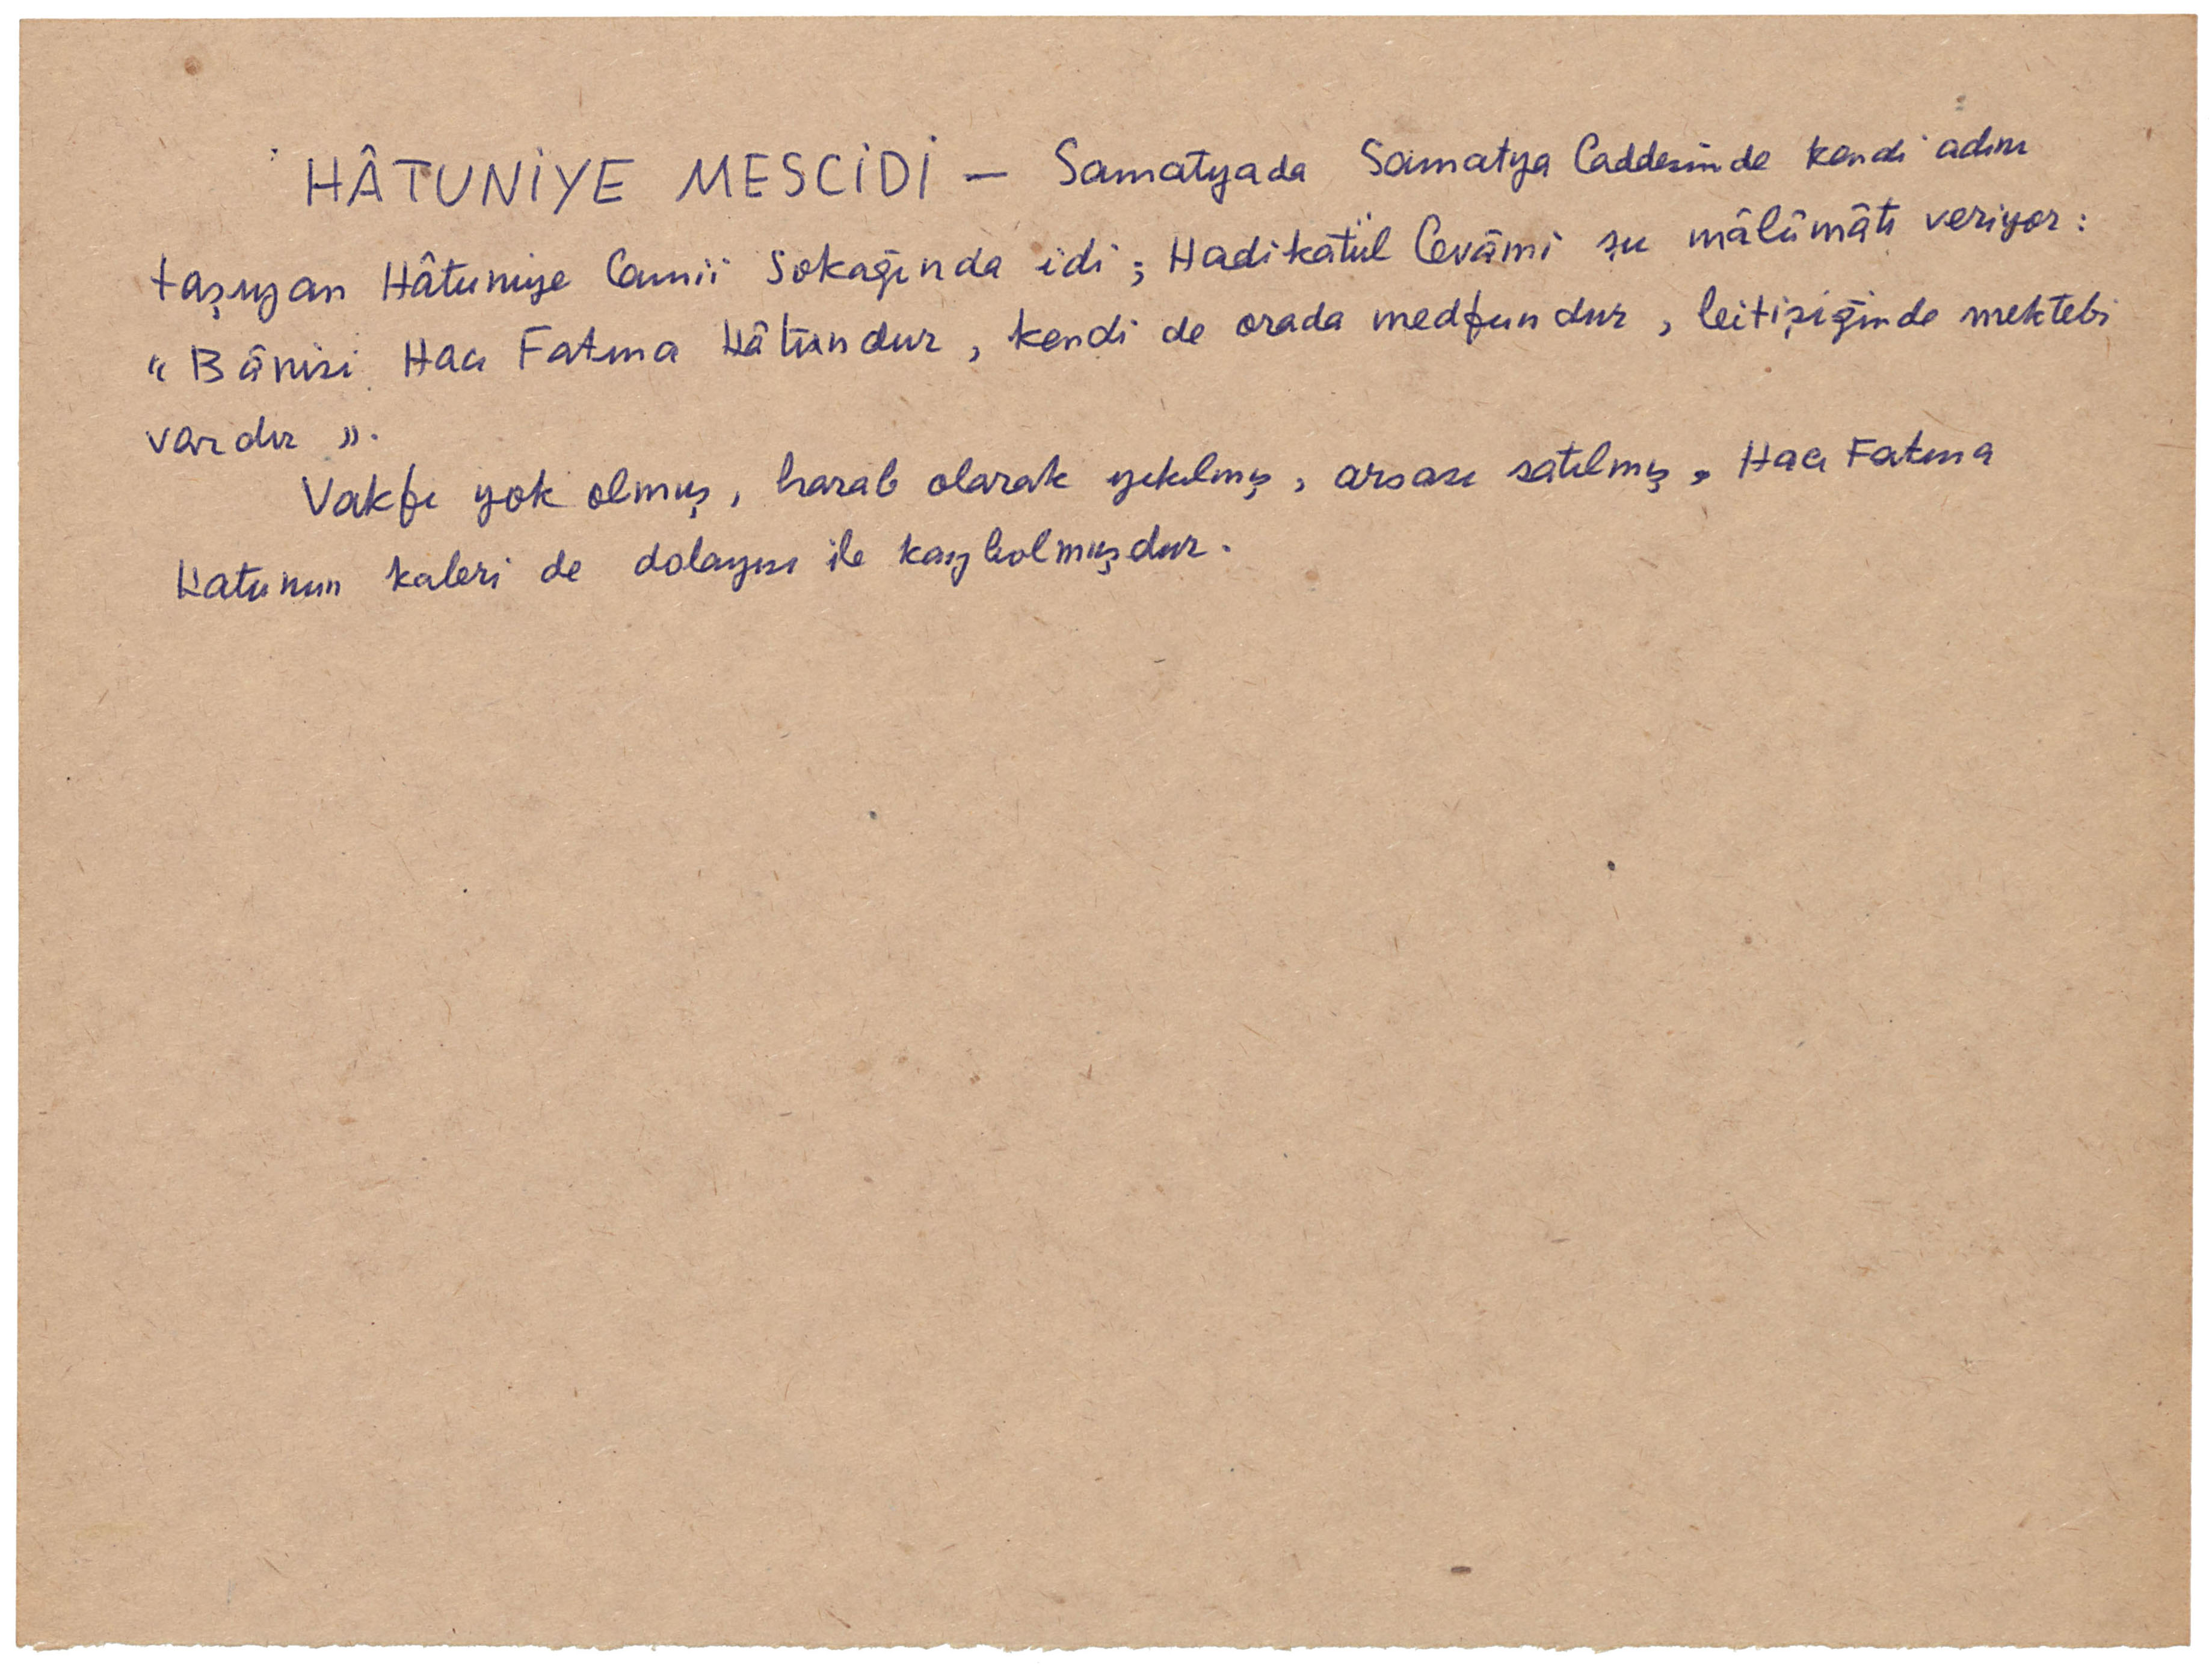 HÂTUNİYE MESCİDİ — Samatyada Samatya Caddesinde kendi adını
taşıyan Hâtuniye Camii Sokağında idi; Hadikatül Cevâmi şu mâlûmâtı veriyor:
"Bânisi Hacı Fatma Hâtundur, kendi de orada medfundur, bitişiğinde mektebi
vardır".
Vakfı yok olmuş, harab olarak yıkılmış, arsası satılmış, Hacı Fatma
Hatunun kabri de dolayısı ile kaybolmuşdur.